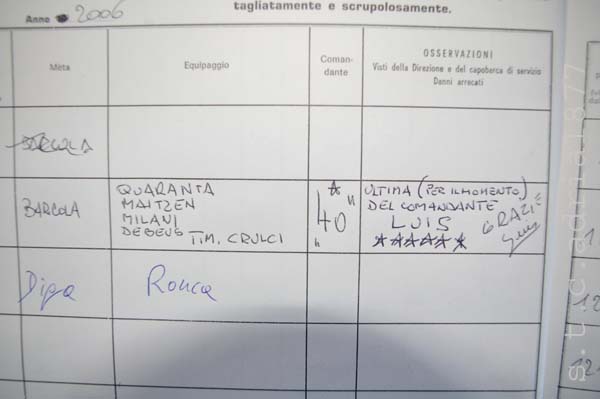 tagliatamente e scrupolosamente.
Anno 2006
Mèta
Equipaggio
Coman-
dante
OSSERVAZIONI
Visti della Direzione e del capobarca di servizio
Danni arrecati
BARCOLA
BARCOLA
QUARANTA
MAITZEN
MILANI
DEBEUS TIM. CRULCI
"40"
ULTIMA (PER IL MOMENTO)
DEL COMANDANTE
LUIS
GRAZIE
Diga
Ronca
s.t.c.adria1877